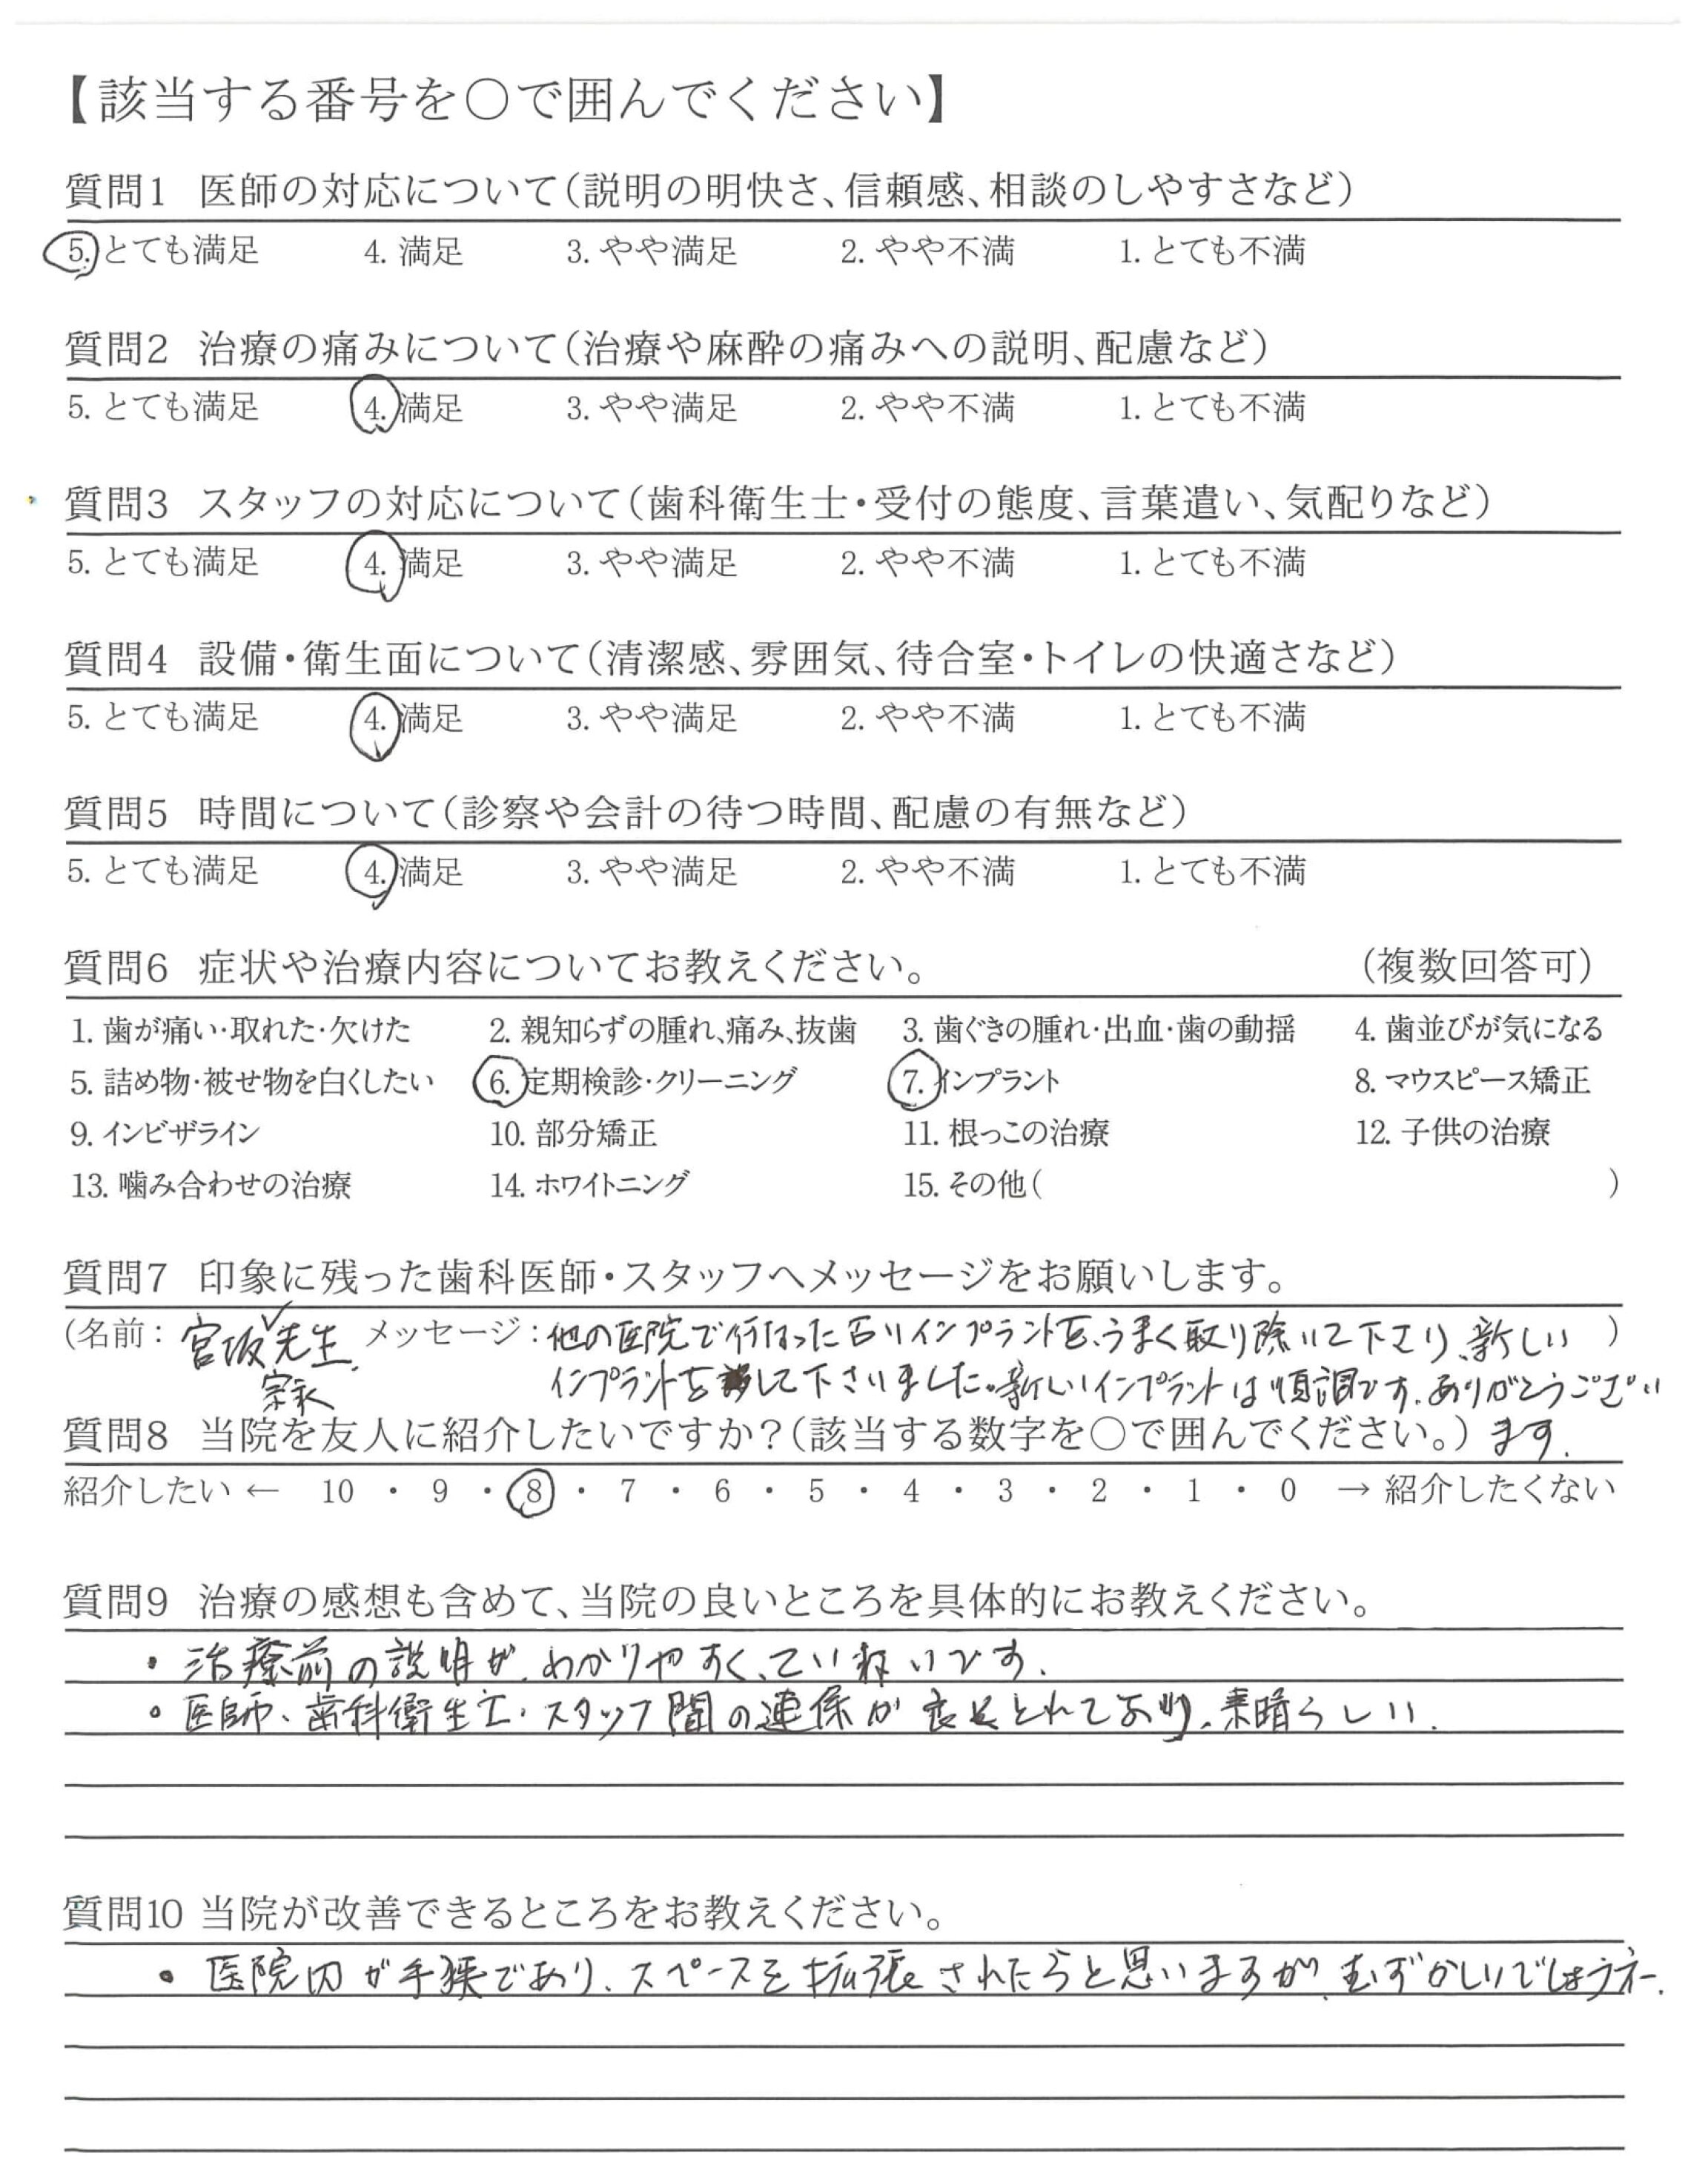 【該当する番号を○で囲んでください】
質問1 医師の対応について(説明の明快さ、信頼感、相談のしやすさなど)
5. とても満足 4. 満足 3. やや満足 2. やや不満 1. とても不満
質問2 治療の痛みについて(治療や麻酔の痛みへの説明、配慮など)
5. とても満足 4. 満足 3. やや満足 2. やや不満 1. とても不満
質問3 スタッフの対応について(歯科衛生士・受付の態度、言葉遣い、気配りなど)
5. とても満足 4. 満足 3. やや満足 2. やや不満 1. とても不満
質問4 設備・衛生面について(清潔感、雰囲気、待合室・トイレの快適さなど)
5. とても満足 4. 満足 3. やや満足 2. やや不満 1. とても不満
質問5 時間について(診察や会計の待つ時間、配慮の有無など)
5. とても満足 4. 満足 3. やや満足 2. やや不満 1. とても不満
質問6 症状や治療内容についてお教えください。 (複数回答可)
1. 歯が痛い・取れた・欠けた 2. 親知らずの腫れ、痛み、抜歯 3. 歯ぐきの腫れ・出血・歯の動揺 4. 歯並びが気になる
5. 詰め物・被せ物を白くしたい 6. 定期検診・クリーニング 7. インプラント 8. マウスピース矯正
9. インビザライン 10. 部分矯正 11. 根っこの治療 12. 子供の治療
13. 噛み合わせの治療 14. ホワイトニング 15. その他( )
質問7 印象に残った歯科医師・スタッフへメッセージをお願いします。
(名前: 宮坂先生. メッセージ:他の医院で行なった古いインプラントを、うまく取り除いて下さり、新しい )
インプラントを して下さいました。新しいインプラントは順調です。ありがとうござい
質問8 当院を友人に紹介したいですか?(該当する数字を○で囲んでください。) ます.
紹介したい ← 10 ・ 9 ・ 8 ・ 7 ・ 6 ・ 5 ・ 4 ・ 3 ・ 2 ・ 1 ・ 0 → 紹介したくない
質問9 治療の感想も含めて、当院の良いところを具体的にお教えください。
・治療前の説明が、わかりやすく、ていねいです.
・医師、歯科衛生士、スタッフ間の連係が良くとれており、素晴らしい.
質問10 当院が改善できるところをお教えください。
・医院内が手狭であり、スペースを拡張されたらと思いますが、むずかしいでしょうネー.